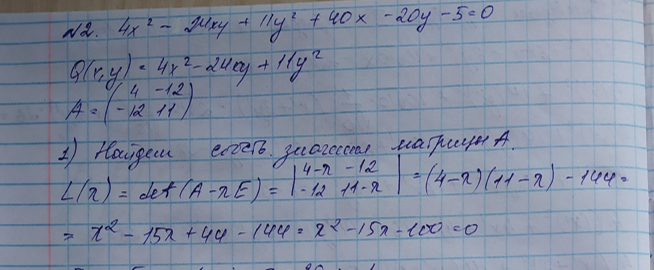 №2. 4x² - 24xy + 11y² + 40x - 20y - 5 = 0
Q(x,y) = 4x² - 24xy + 11y²
A = (4 -12
-12 11)
1) Найдем собств. значения матрицы A.
L(λ) = det(A - λE) = |4-λ -12
-12 11-λ| = (4-λ)(11-λ) - 144 =
= λ² - 15λ + 44 - 144 = λ² - 15λ - 100 = 0